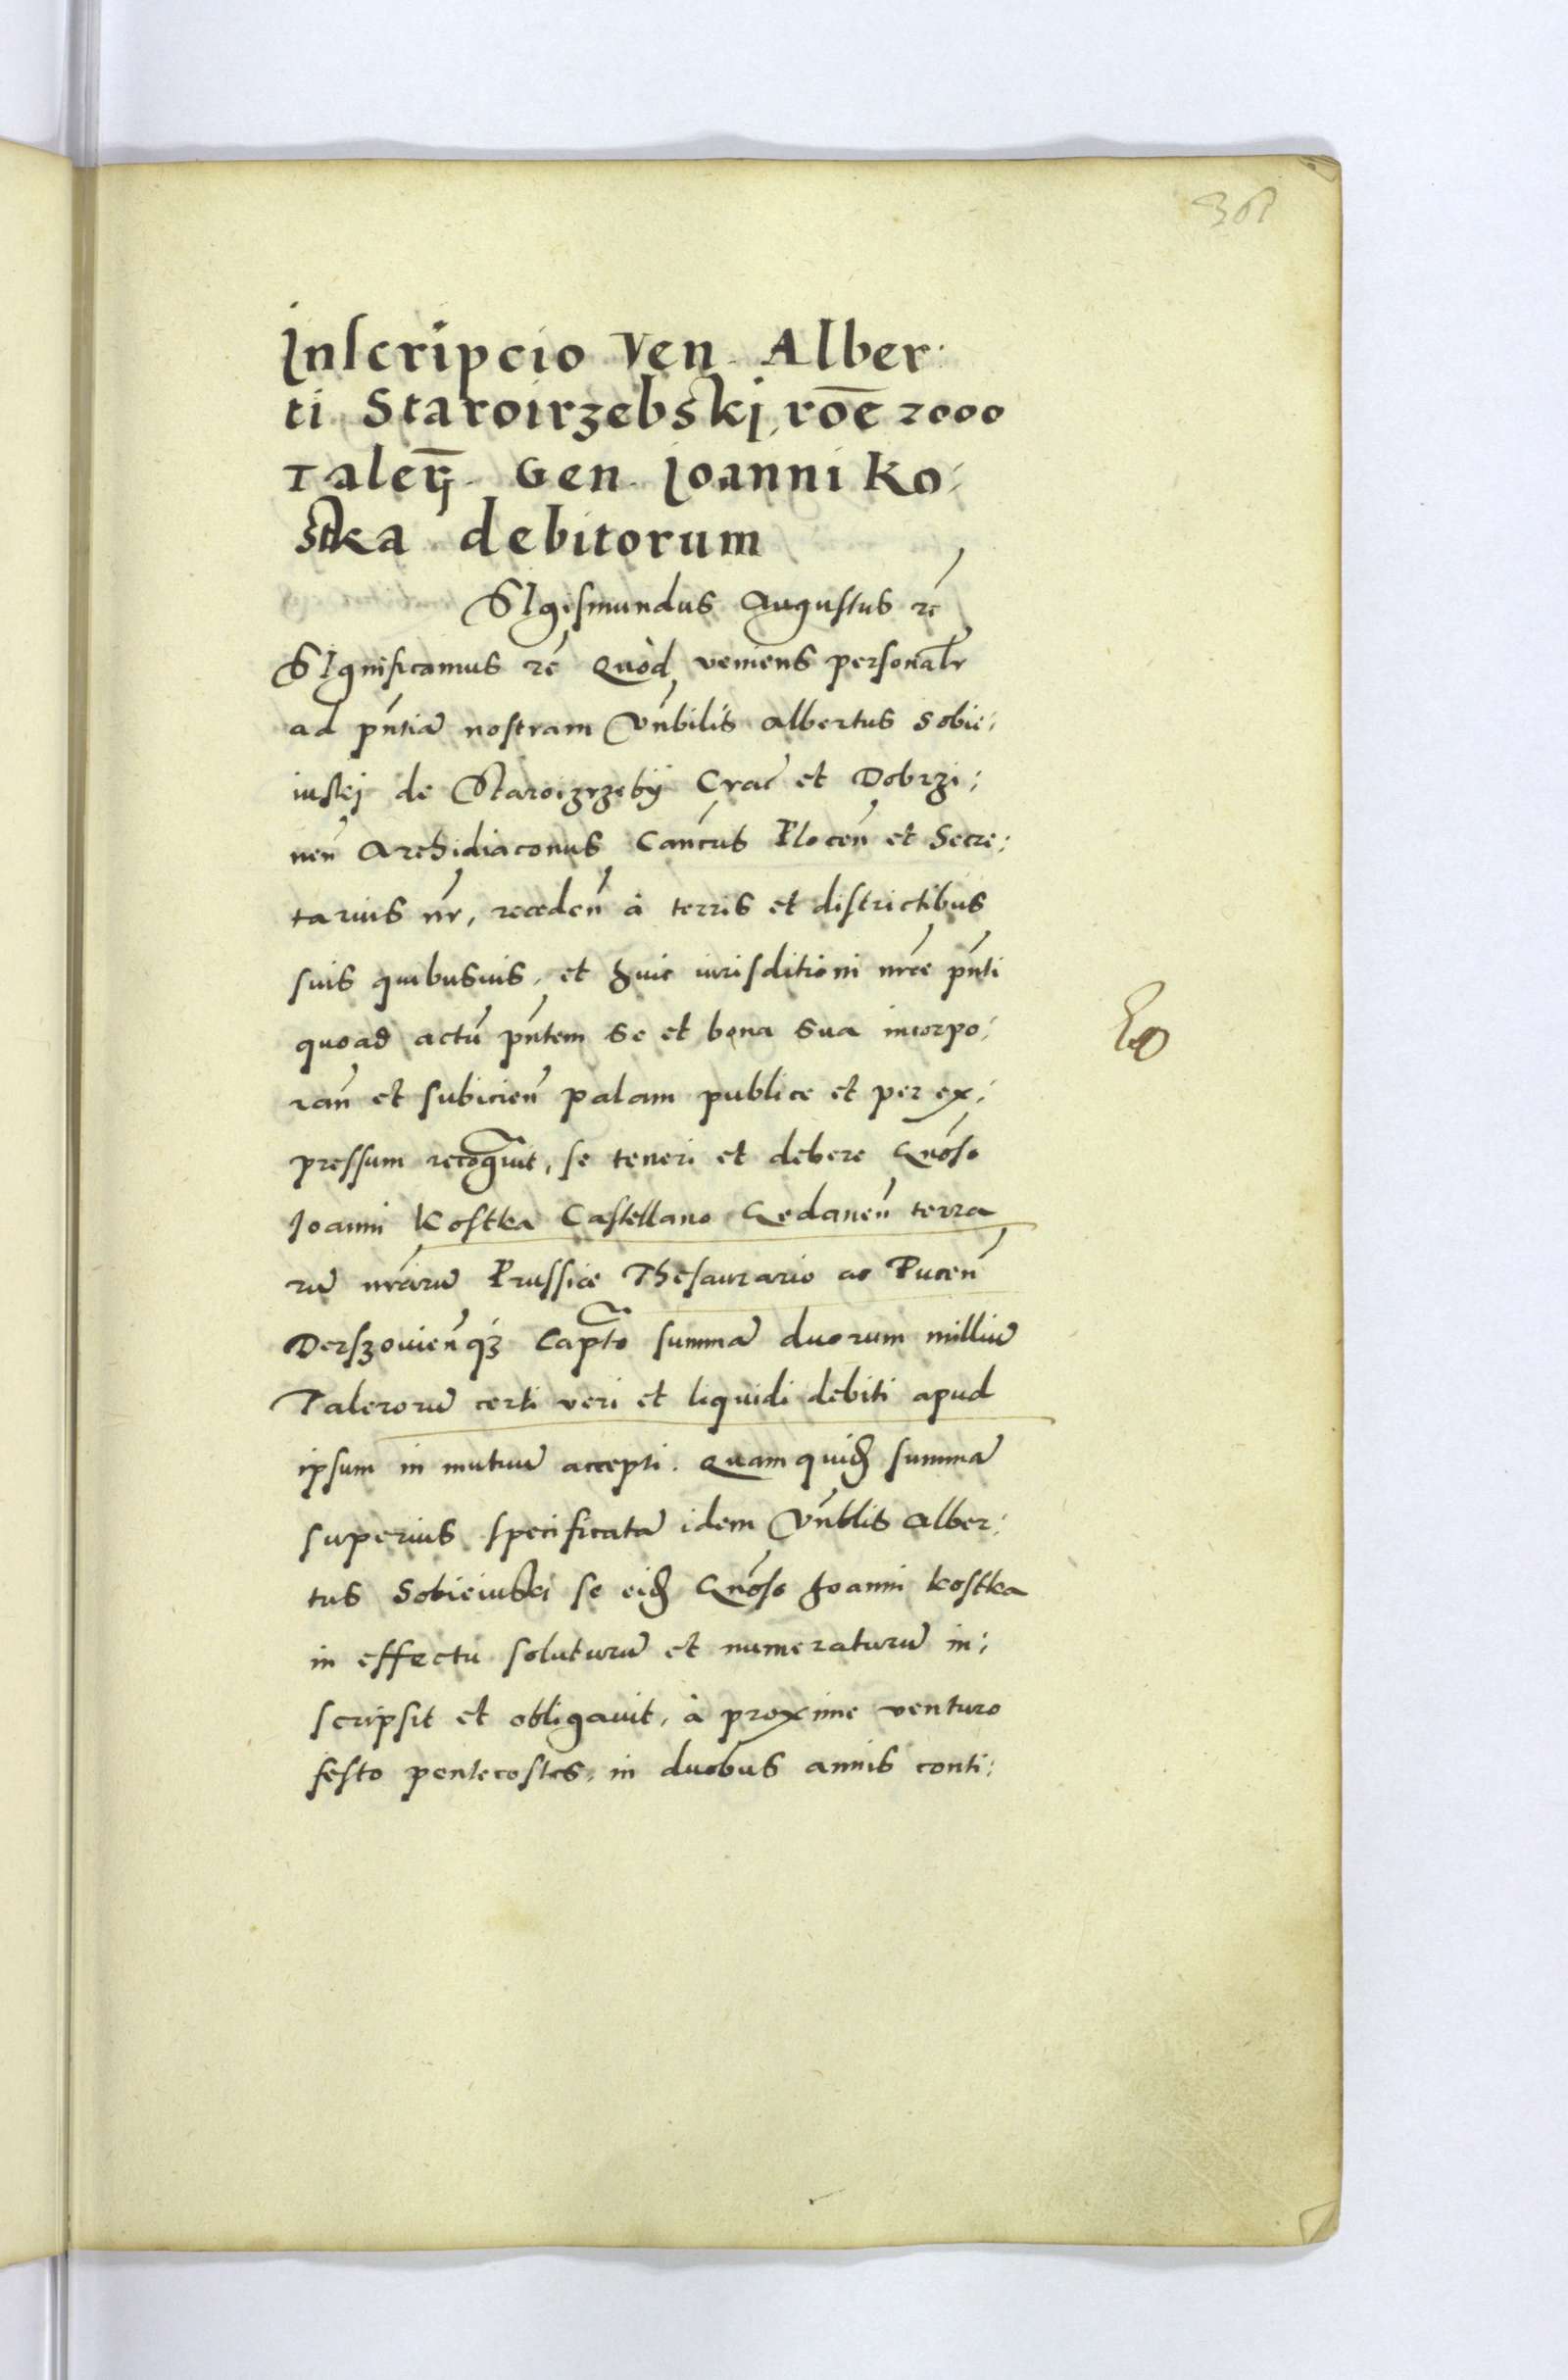 361
Inscripcio Ven. Alber:
ti Staroirzebskj, rōe 2000
Taleꝝ. Gen. Joanni Ko:
stka debitorum
SIgismundus Augustus rc̃
SIgnificamus rc̃ Quòd veniens personalr̃
ad pñtiã nostram Vñbilis Albertus Sobie:
iuskj de Staroizrzebÿ Crac̃ et Dobrzi:
neñ Archidiaconus Cañcus Ploceñ et Secre:
tarius nr̃, recedeñ à terris et districtibus
suis quibusuis, et huic iurisditioni nr̃ee pñti
quoad actũ pñtem se et bona sua incorpo:
rañ et subicieñ palam publice et per ex:
pressum recogũit, se teneri et debere Gñoso
Joanni Kostka Castellano Gedaneñ terra
rũ nr̃arũ Prussiae Thesaurario ac Puceñ
Derszouieñqꝫ Capt̃o summã duorum milliũ
Talerorũ certi veri et liquidi debiti apud
ipsum in mutuũ accepti. Quam quid̃ summã
superius specificatã idem Vñblis Alber:
tus Sobieiuski se eid̃ Gñoso Joanni Kostka
in effectu soluturũ et numeraturũ in:
scripsit et obligauit, à proxime venturo
festo pentecostes, in duobus annis conti: